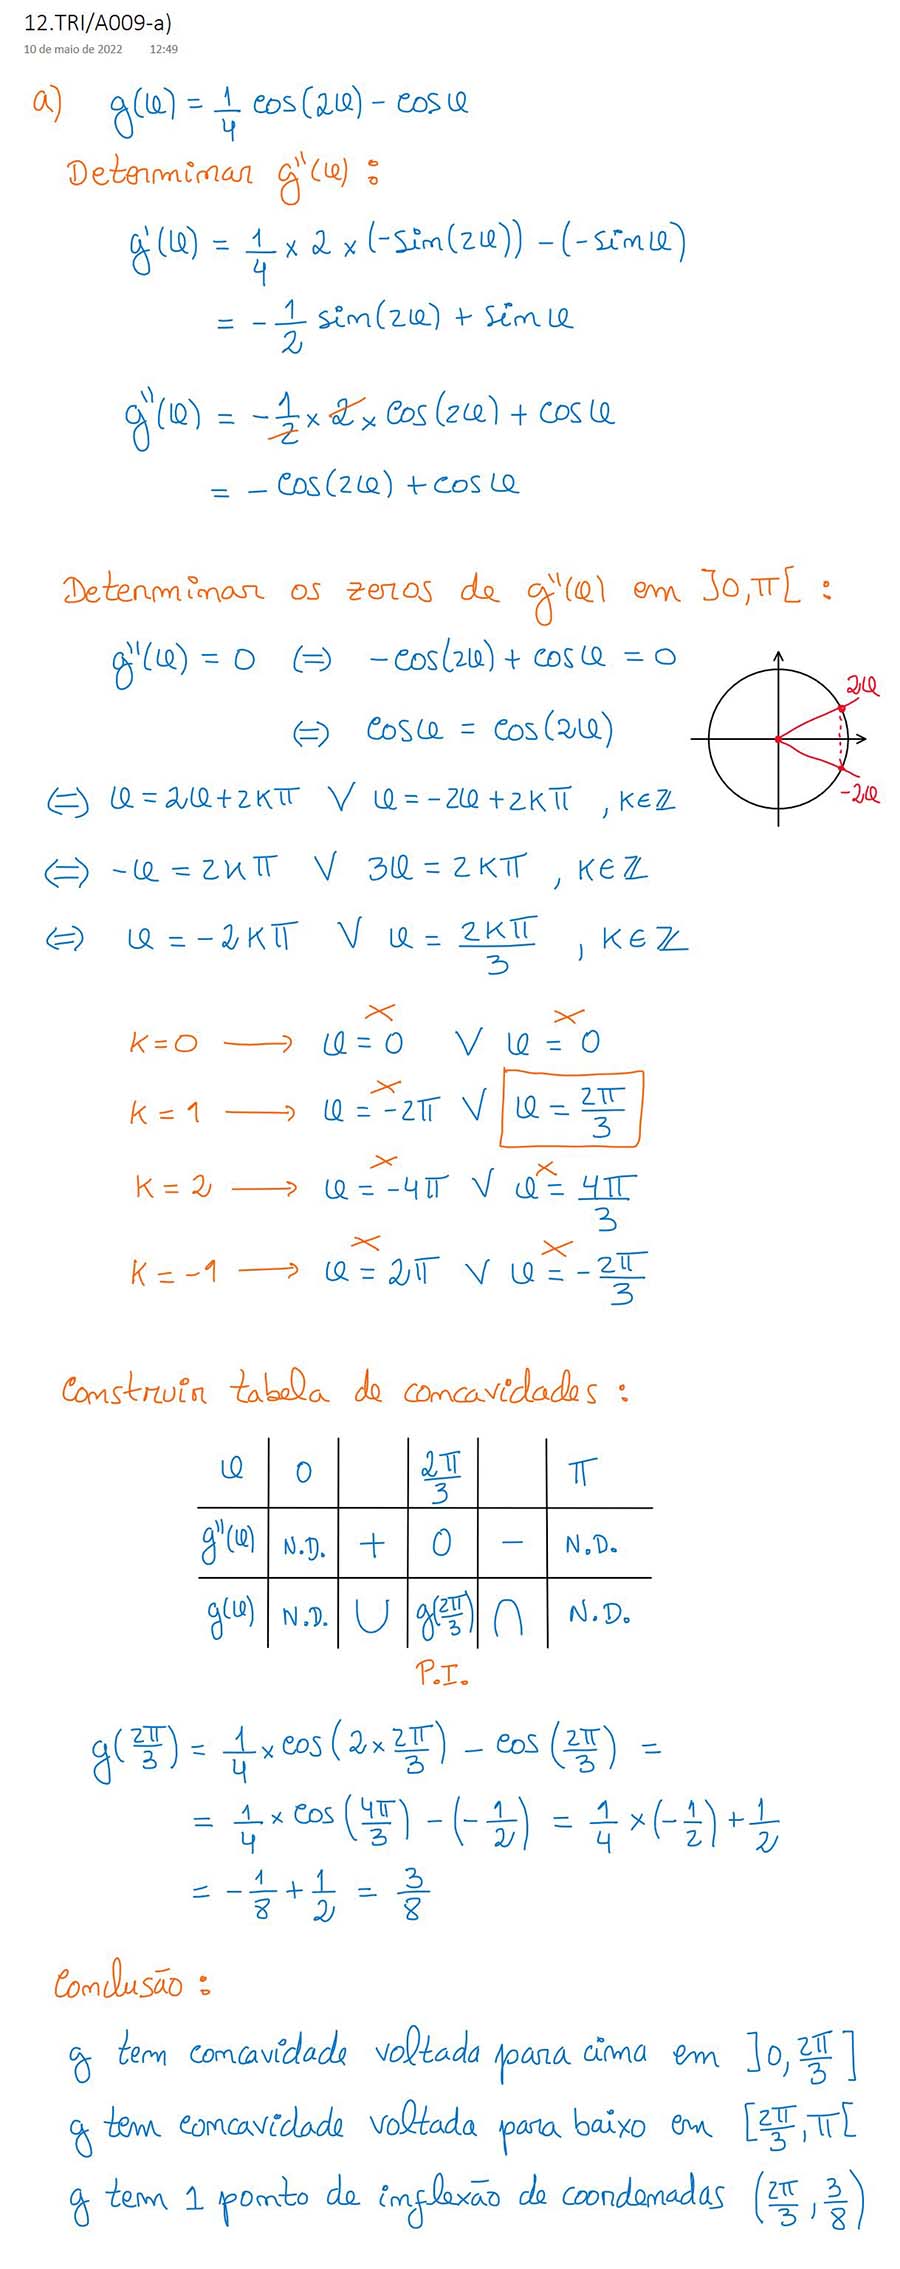 12.TRI/A009-a)
10 de maio de 2022 12:49
a) g(φ) = 1/4 cos(2φ) - cosφ
Determinar g''(φ) :
g'(φ) = 1/4 × 2 × (-sin(2φ)) - (-sinφ)
= -1/2 sin(2φ) + sinφ
g''(φ) = -1/2 × 2 × cos(2φ) + cosφ
= - cos(2φ) + cosφ
Determinar os zeros de g''(φ) em ]0,π[ :
g''(φ) = 0 (=) -cos(2φ) + cosφ = 0
2φ
(=) cosφ = cos(2φ)
-2φ
(=) φ = 2φ + 2kπ ∨ φ = -2φ + 2kπ , k∈ℤ
(=) -φ = 2kπ ∨ 3φ = 2kπ , k∈ℤ
(=) φ = -2kπ ∨ φ = 2kπ/3 , k∈ℤ
× ×
k=0 → φ = 0 ∨ φ = 0
×
k=1 → φ = -2π ∨ φ = 2π/3
× ×
k=2 → φ = -4π ∨ φ = 4π/3
× ×
k=-1 → φ = 2π ∨ φ = -2π/3
Construir tabela de concavidades :
φ 0 2π/3 π
g''(φ) N.D. + 0 - N.D.
g(φ) N.D. ∪ g(2π/3) ∩ N.D.
P.I.
g(2π/3) = 1/4 × cos(2×2π/3) - cos(2π/3) =
= 1/4 × cos(4π/3) - (-1/2) = 1/4 × (-1/2) + 1/2
= -1/8 + 1/2 = 3/8
Conclusão :
g tem concavidade voltada para cima em ]0, 2π/3]
g tem concavidade voltada para baixo em [2π/3, π[
g tem 1 ponto de inflexão de coordenadas (2π/3, 3/8)